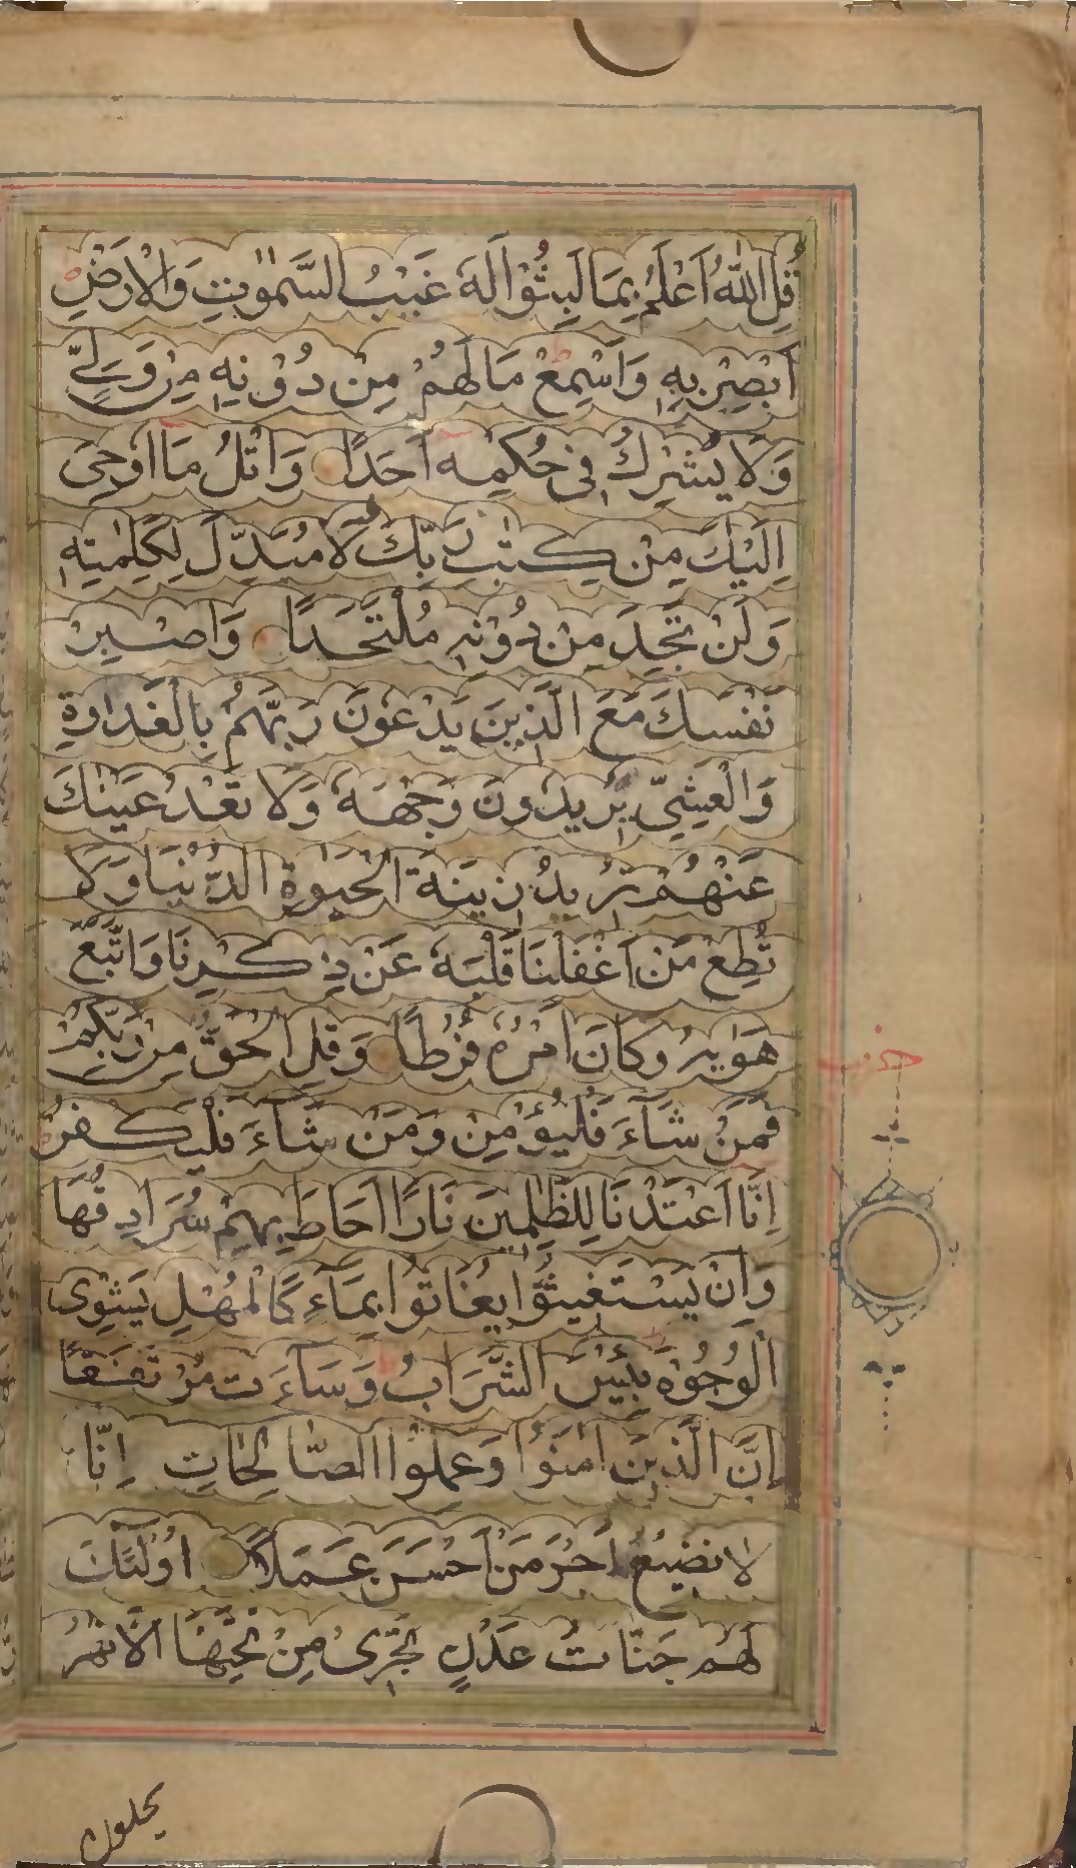 قُلِ اللّٰهُ اَعْلَمُ بِمَا لَبِثُوْا لَهٗ غَيْبُ السَّمٰوٰتِ وَالْاَرْضِ
اَبْصِرْ بِهٖ وَاَسْمِعْ مَا لَهُمْ مِنْ دُوْنِهٖ مِنْ وَلِيٍّ
وَلَا يُشْرِكُ فِىْ حُكْمِهٖ اَحَدًا وَاتْلُ مَا اُوْحِىَ
اِلَيْكَ مِنْ كِتٰبِ رَبِّكَ لَا مُبَدِّلَ لِكَلِمٰتِهٖ
وَلَنْ تَجِدَ مِنْ دُوْنِهٖ مُلْتَحَدًا وَاصْبِرْ
نَفْسَكَ مَعَ الَّذِيْنَ يَدْعُوْنَ رَبَّهُمْ بِالْغَدٰوةِ
وَالْعَشِيِّ يُرِيْدُوْنَ وَجْهَهٗ وَلَا تَعْدُ عَيْنٰكَ
عَنْهُمْ تُرِيْدُ زِيْنَةَ الْحَيٰوةِ الدُّنْيَا وَلَا
تُطِعْ مَنْ اَغْفَلْنَا قَلْبَهٗ عَنْ ذِكْرِنَا وَاتَّبَعَ
هَوٰيهُ وَكَانَ اَمْرُهٗ فُرُطًا وَقُلِ الْحَقُّ مِنْ رَبِّكُمْ
فَمَنْ شَآءَ فَلْيُؤْمِنْ وَمَنْ شَآءَ فَلْيَكْفُرْ
اِنَّا اَعْتَدْنَا لِلظّٰلِمِيْنَ نَارًا اَحَاطَ بِهِمْ سُرَادِقُهَا
وَاِنْ يَسْتَغِيْثُوْا يُغَاثُوْا بِمَآءٍ كَالْمُهْلِ يَشْوِى
الْوُجُوْهَ بِئْسَ الشَّرَابُ وَسَآءَتْ مُرْتَفَقًا
اِنَّ الَّذِيْنَ اٰمَنُوْا وَعَمِلُوا الصّٰالِحٰاتِ اِنَّا
لَا نُضِيْعُ اَجْرَ مَنْ اَحْسَنَ عَمَلًا اُولٰٓئِكَ
لَهُمْ جَنّٰاتُ عَدْنٍ تَجْرِىْ مِنْ تَحْتِهَا الْاَنْهٰرُ
حزب
يحلون